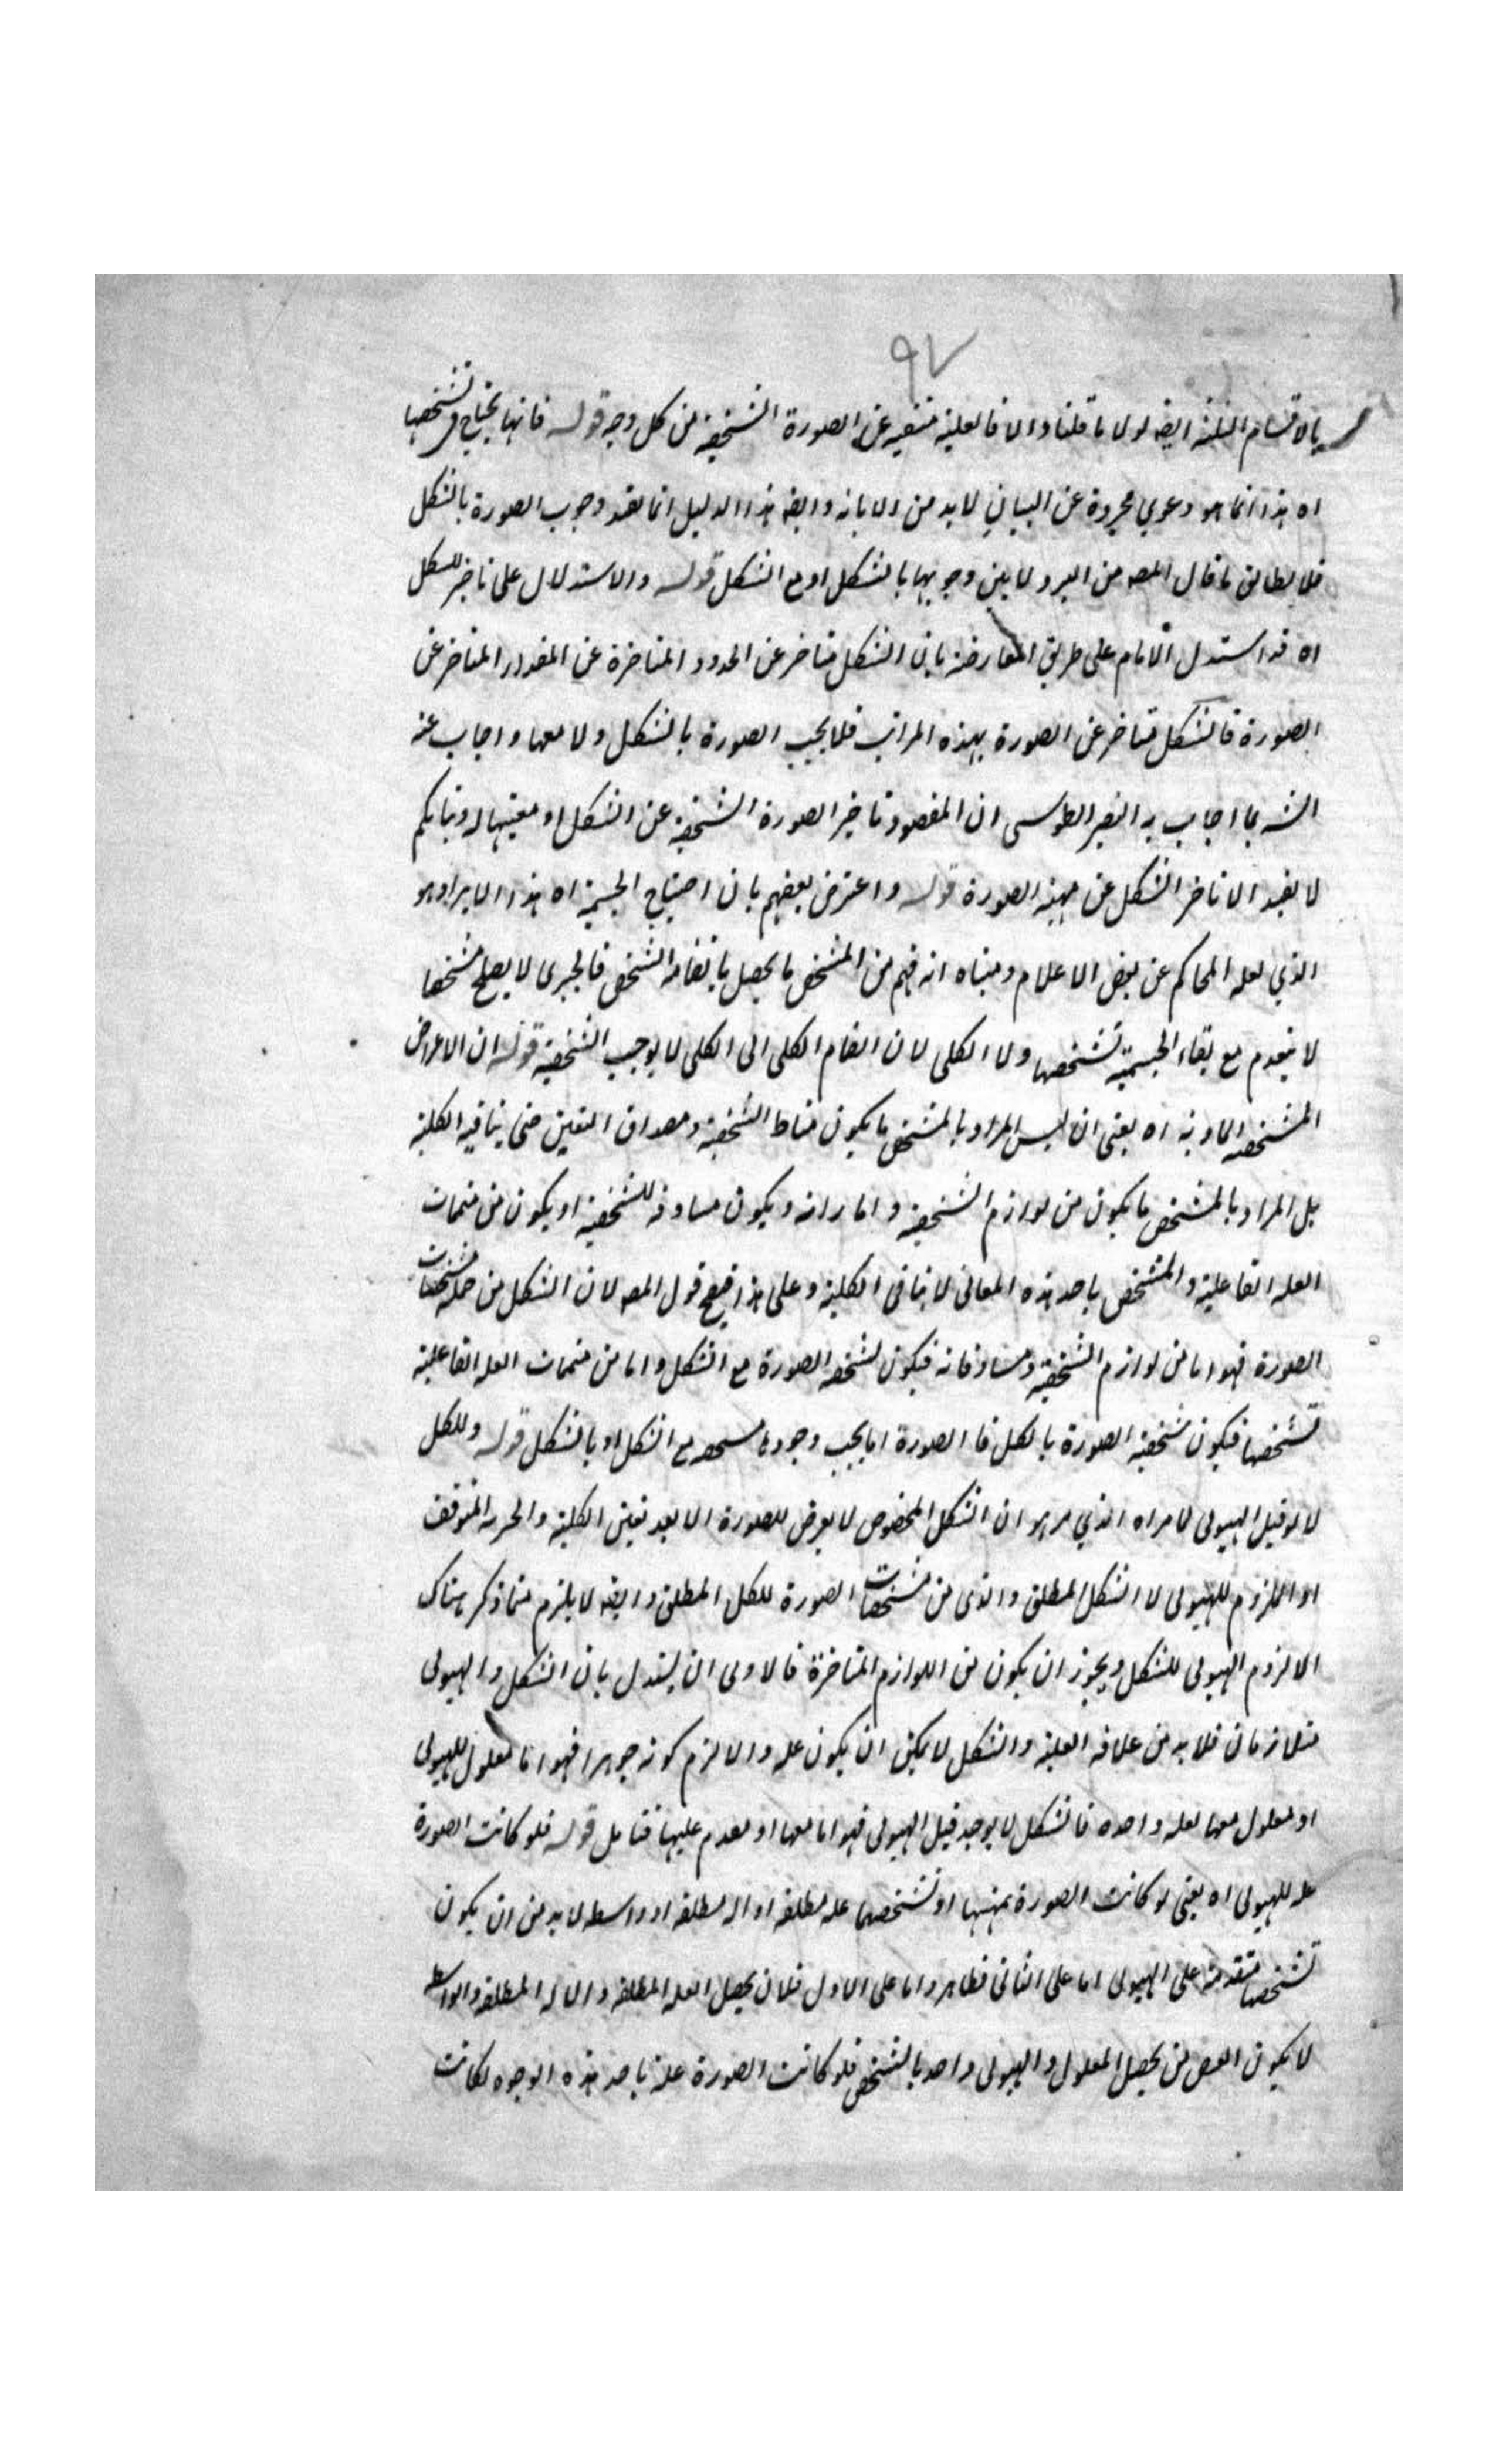 ٩٧
بالاقسام الثلثة ايضه لولا ما قلنا والا فالعلية منتفيه عن الصورة الشخصية من كل وجه قوله فانها يحتاج في تشخصها
اه هذا انما هو دعوي مجردة عن البيان لابد من الابانه وايضه هذا الدليل انما يفيد وجوب الصورة بالشكل
فلا يطابق ما قال المصه من وجوبها بالشكل او مع الشكل قوله والاستدلال على تاخير الشكل
اه قد استدل الامام على طريق المعارضة بان الشكل متاخر عن الحدود المتاخرة عن المقدار المتاخر عن
الصورة فالشكل متاخر عن الصورة بهذه المراتب فلا يجب الصورة بالشكل ولا معها واجاب عنه
الشه بما اجاب به النصير الطوسى ان المقصود تاخير الصورة الشخصية عن الشكل او معيتها له وبيانكم
لا يفيد الا تاخر الشكل عن مهية الصورة قوله واعترض بعضهم بان احتياج الجسمية اه هذا الايراد هو
الذي نقله المحاكم عن بعض الاعلام ومبناه انه فهم من المشخص ما يحصل بانضمامه الشخص فالجزئى لا يصلح مشخصا
لا يعدم مع بقاء الجسمية تشخصها ولا الكلى لان انضمام الكلى الى الكلى لا يوجب الشخصية قوله ان الاعراض
المشخصه الماديه اه يعنى ان ليس المراد بالمشخص ما يكون مناط الشخصية ومصداق التعين حتى ينافيه الكلية
بل المراد بالمشخص ما يكون من لوازم الشخصية واماراته ويكون مساوقه للشخصية او يكون من متممات
العله الفاعلية والمشخص باحد هذه المعانى لا ينافى الكلية وعلى هذا فيصح قول المصه لان الشكل من جملة مشخصات
الصورة فهو اما من لوازم الشخصية ومساوقاته فيكون تشخصه الصورة مع الشكل واما من متممات العله الفاعلية
تشخصها فيكون شخصية الصورة بالشكل فا الصورة اما يجب وجودها مع الشكل او بالشكل قوله وللشكل
لا يوجد قبل الهيولى لما مر اه الذي مر هو ان الشكل المخصوص لا يعرض للصورة الا بعد تعين الكلية والجزئية المتوقف
او الملزوم للهيولى لا الشكل المطلق والذى من مشخصات الصورة للكل المطلق وايضه لا يلزم مما ذكر هناك
الا لزوم الهيولى للشكل ويجوز ان يكون من اللوازم المتاخرة فالاولى ان يستدل بان الشكل والهيولى
متلازمان فلابد من علاقه العلية والشكل لا يمكن ان يكون عله والا لزم كونه جوهرا فهو اما معلول للهيولى
او معلول معها لعله واحده فالشكل لا يوجد قبل الهيولى فهو اما معها او مقدم عليها فتامل قوله فلو كانت الصورة
عله للهيولى اه يعنى لو كانت الصورة بمهيتها او تشخصها عله مطلقه او اله مطلقه او واسطه لابد من ان يكون
تشخصها متقدمة على الهيولى اما على الثانى فظاهر واما على الاول فلان يحصل العله المطلقه والاله المطلقه والواسطه
لا يكون انقص من يحصل المعلول والهيولى واحد بالشخص فلو كانت الصورة علة باحد هذه الوجوه لكانت